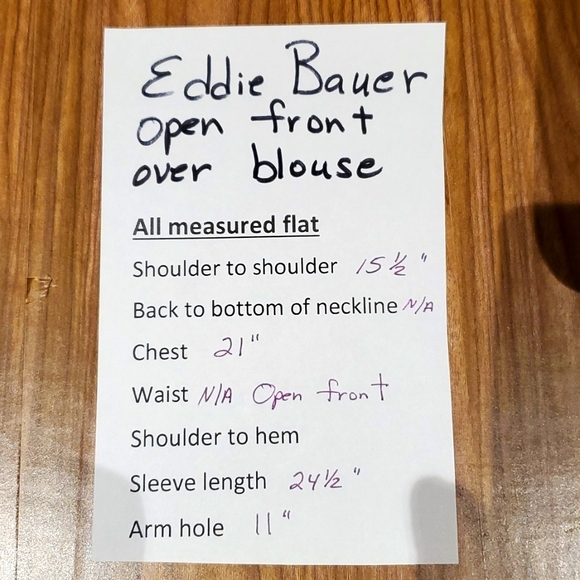 Eddie Bauer
open front
over blouse
All measured flat
Shoulder to shoulder 15 ½ "
Back to bottom of neckline N/A
Chest 21"
Waist N/A Open front
Shoulder to hem
Sleeve length 24 ½ "
Arm hole 11 "